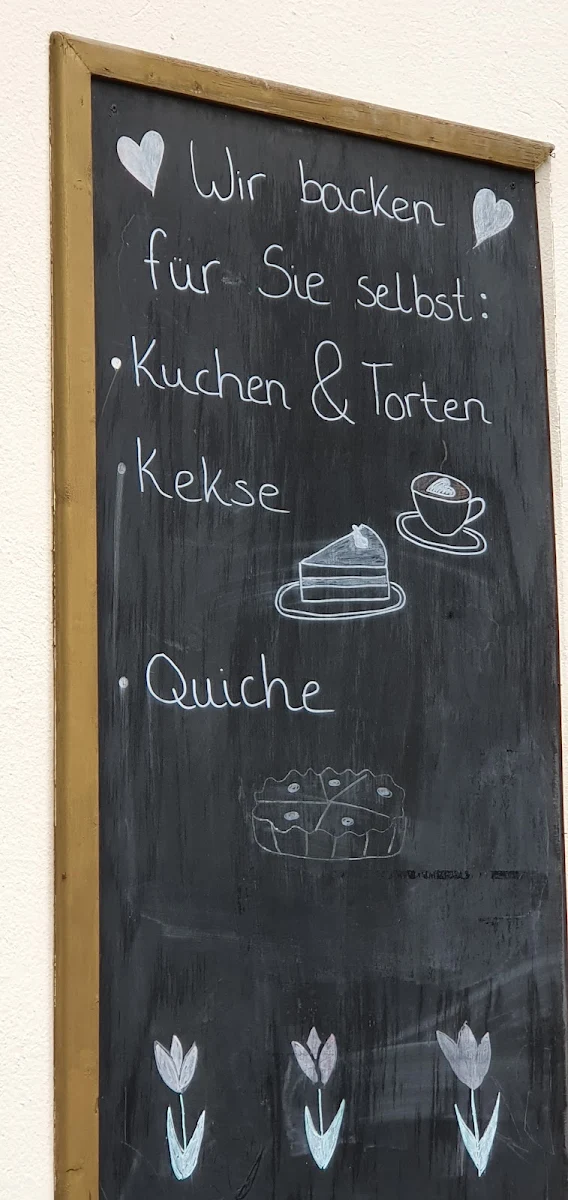 Wir backen
für Sie selbst:
• Kuchen & Torten
• Kekse
• Quiche